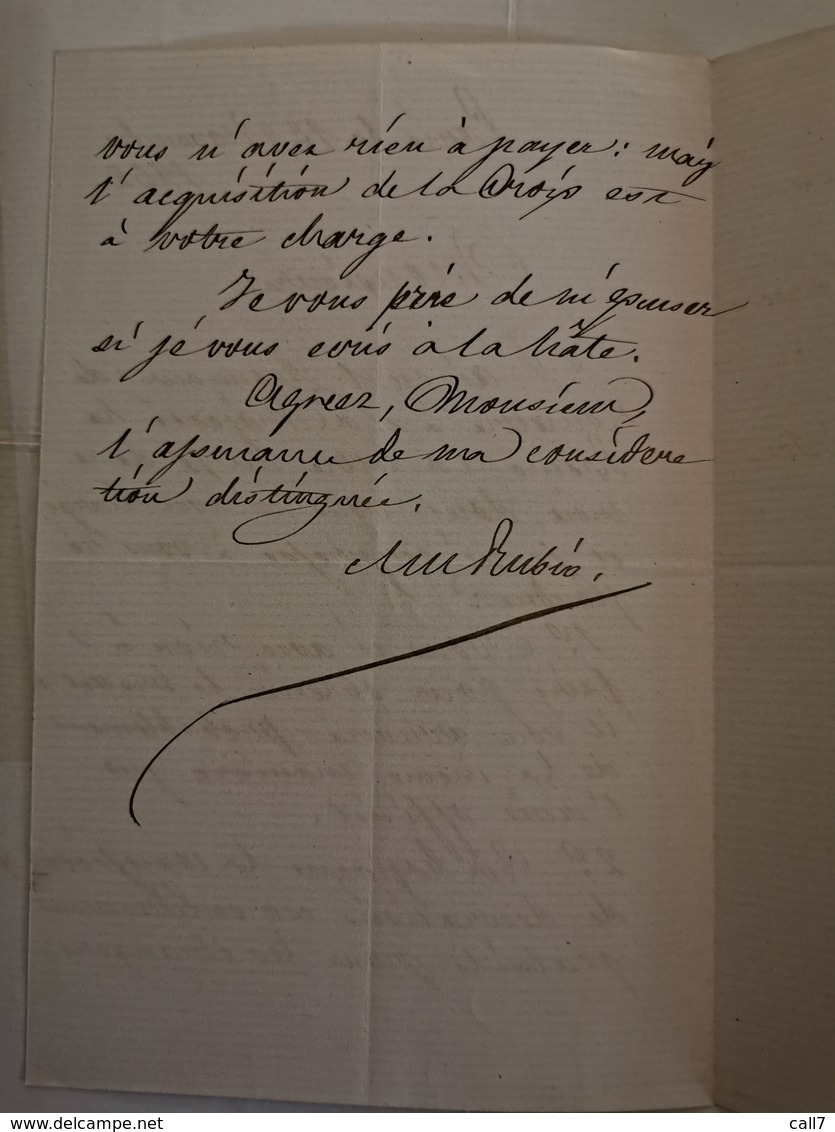 vous n'avez rien à payer: mais
l'acquisition de la Croix est
à votre charge.
Je vous prie de m'excuser
si je vous écris à la hâte.
Agréez, Monsieur,
l'assurance de ma considéra
tion distinguée.
Rubio.
delcampe.net
call7